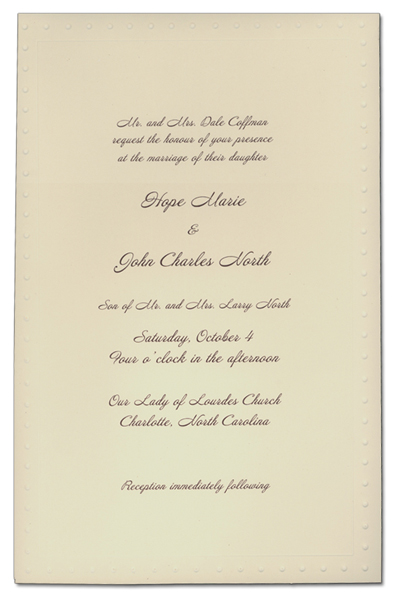 Mr. and Mrs. Dale Coffman
request the honour of your presence
at the marriage of their daughter
Hope Marie
&
John Charles North
Son of Mr. and Mrs. Larry North
Saturday, October 4
Four o'clock in the afternoon
Our Lady of Lourdes Church
Charlotte, North Carolina
Reception immediately following